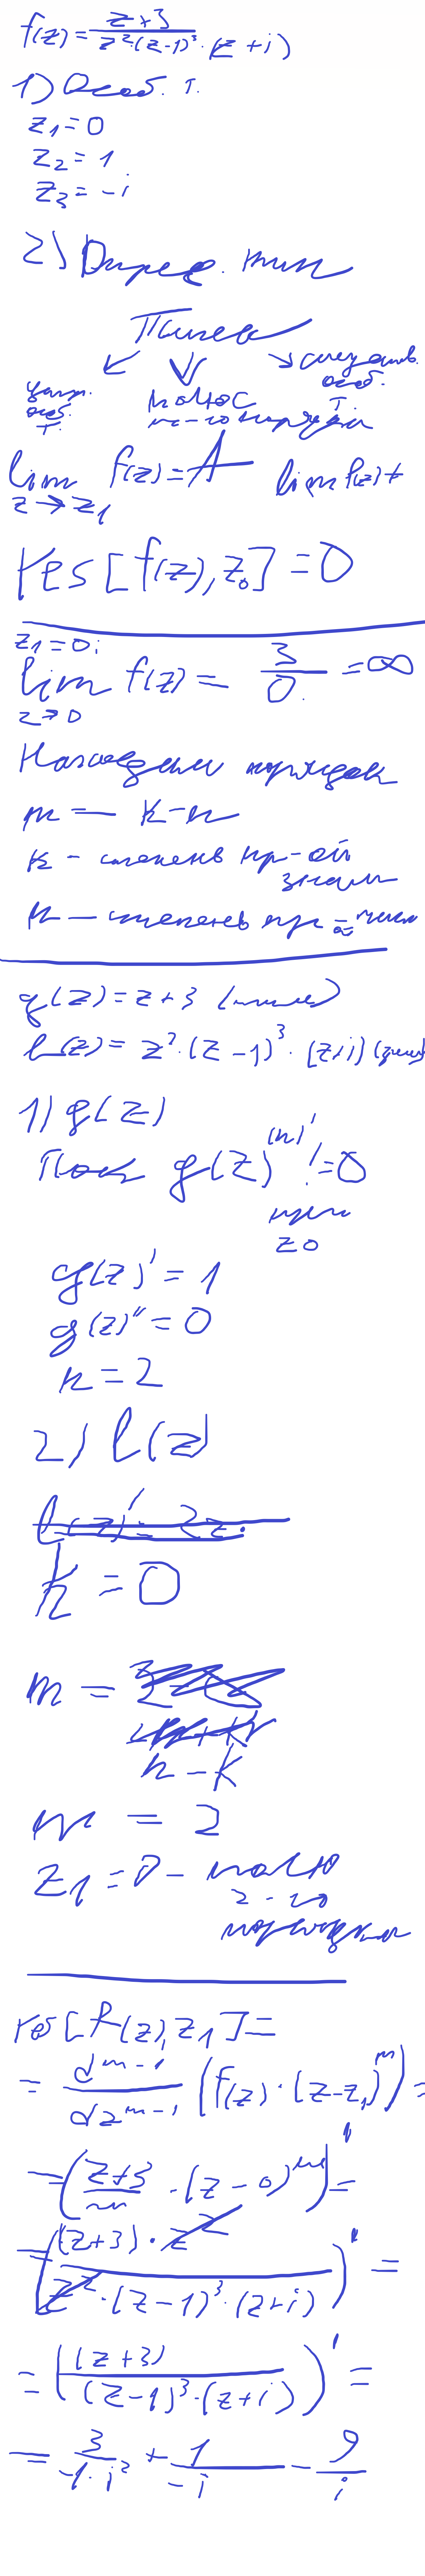 f(z) = z+3 / z²·(z-1)³·(z+i)
1) Особ. т.
z₁ = 0
z₂ = 1
z₃ = -i
2) Опред. тип
Типы
устр. особ. т.
полюс m-го порядка
существ. особ. т.
lim z→z₁ f(z) = A lim f(z) ≠
res [f(z), z₀] = 0
z₁ = 0;
lim z→0 f(z) = 3/0 = ∞
Нахождения порядок
m = k-n
k - степень пр-ой
знам
n - степень пр
g(z) = z+3
l(z) = z²·(z-1)³·(z+i)
1) g(z)
Пока g(z)⁽ⁿ⁾ ! = 0
при
z0
g(z)' = 1
g(z)'' = 0
n = 2
2) l(z)
k = 0
m =
n-k
m = 2
z₁ = 0 - полю
2-го
порядка
res [f(z), z₁] =
= d^m-1 / dz^m-1 (f(z)·(z-z₁)^m) =
= (z+3 / ·(z-0)^m)' =
= ((z+3)·z² / z²·(z-1)³·(z+i))' =
= ((z+3) / (z-1)³·(z+i))' =
= 3 / -1·i² + 1 / -i - 9 / i